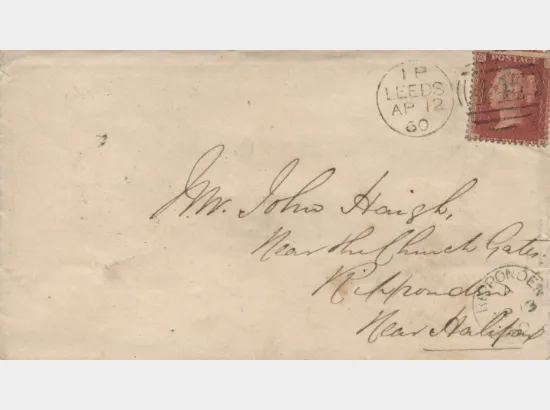 POSTAGE
1 P
LEEDS
AP 12
60
Mr. John Haigh,
Near the Church Gates
Ripponden
Near Halifax
RIPPONDEN